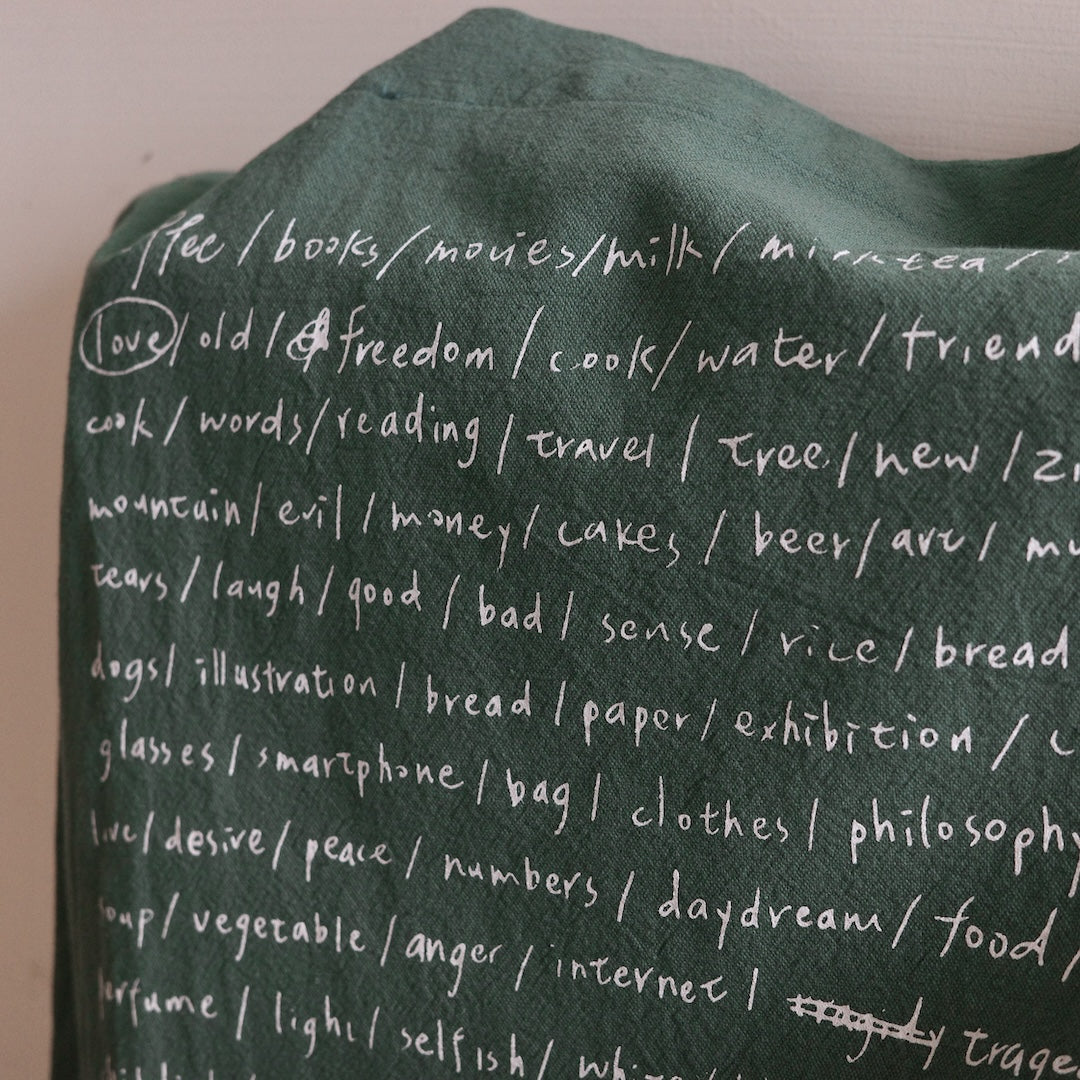 ffee / books / movies / milk / milk tea /
love / old / freedom / cook / water / friend
cook / words / reading / travel / tree / new /
mountain / evil / money / cakes / beer / art / mu
tears / laugh / good / bad / sense / rice / bread
dogs / illustration / bread / paper / exhibition /
glasses / smartphone / bag / clothes / philosophy
live / desire / peace / numbers / daydream / food /
soup / vegetable / anger / internet / tragedy trage
perfume / light / selfish /